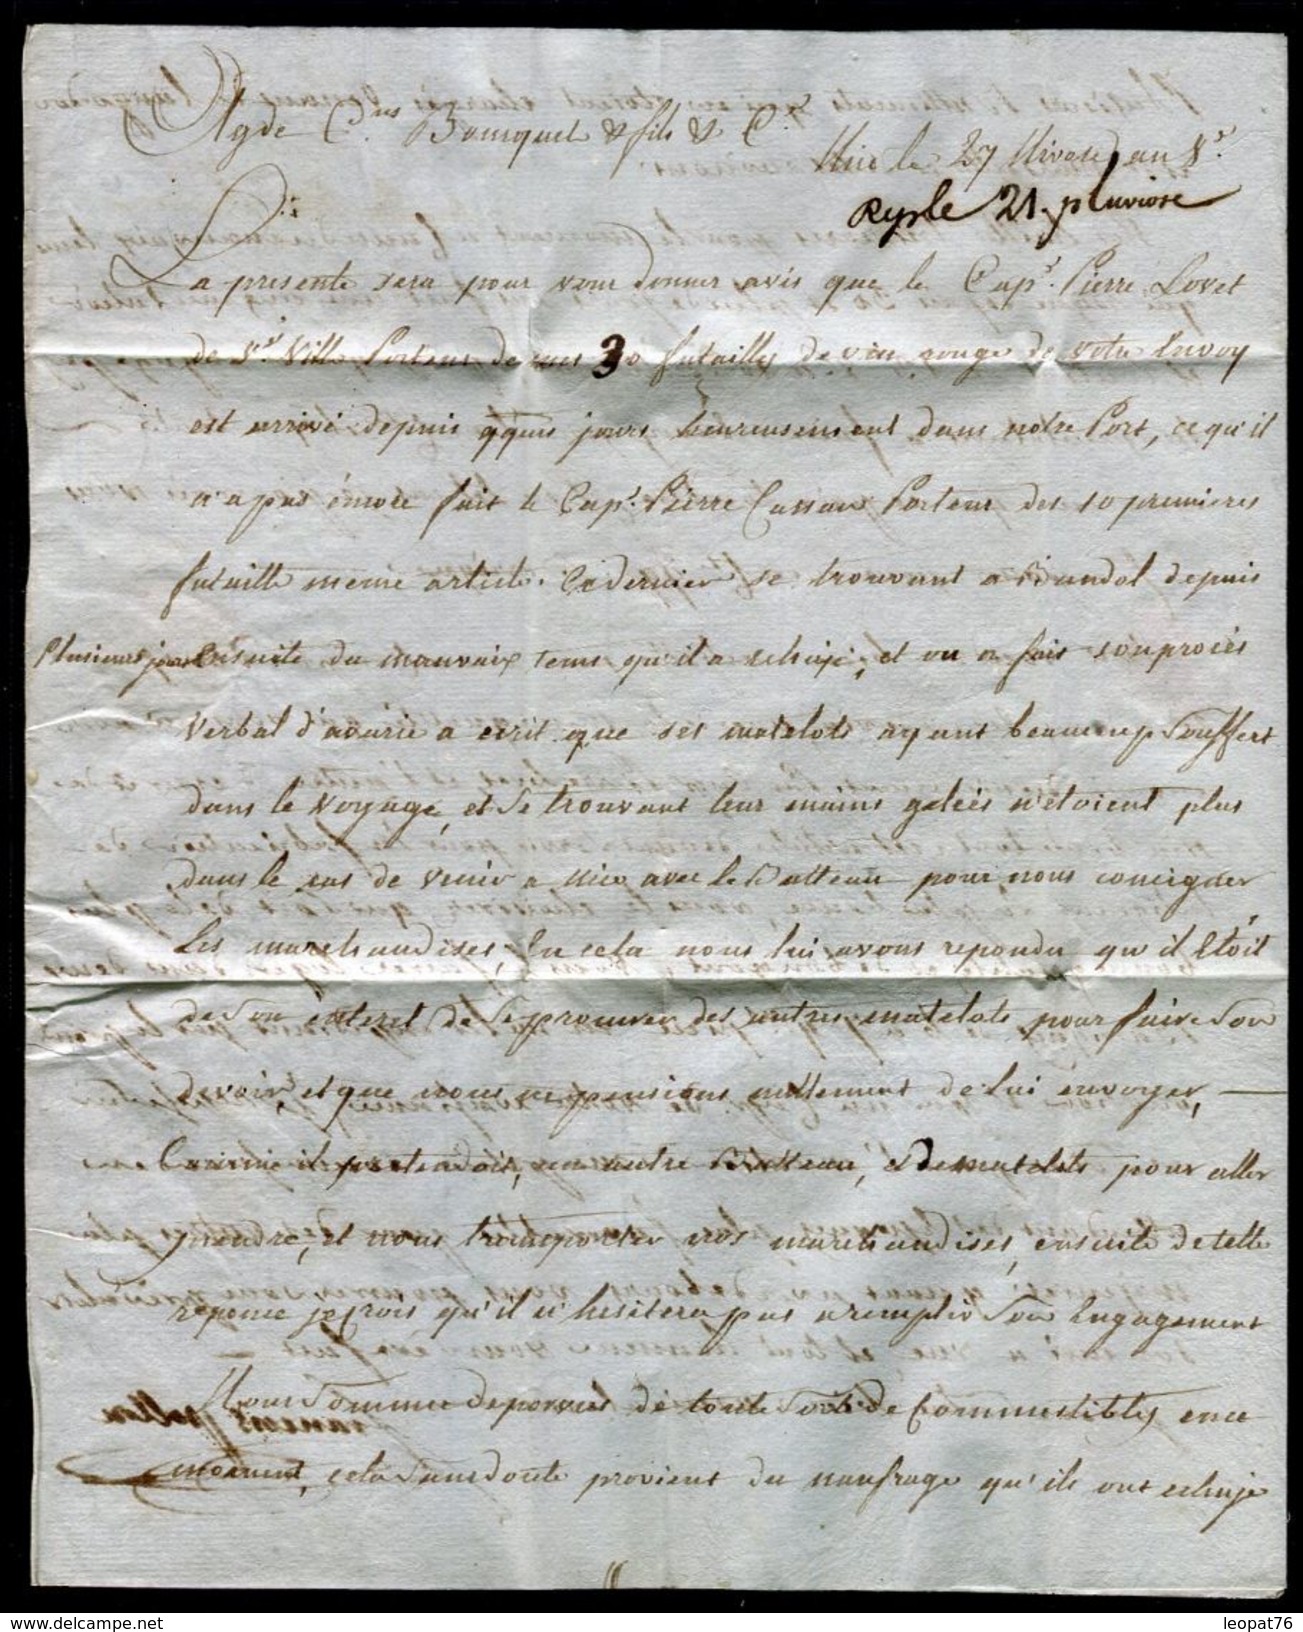 Agde C.ens Bousquet & fils & C.e
Nice le 27 Nivose, an 8.e
Rep le 21. pluviose
La presente sera pour vous donner avis que le Cap.e Pierre Lovet
de V.tre Ville Porteur de vos 30 futailles de vin rouge de votre Envoy
est arrivé depuis qques jours heureusement dans notre Port, ce qu'il
n'a pas encore fait le Cap.e Pierre Cassan Porteur des 10 premieres
futaille meme article. Ce dernier se trouvant a Bandol depuis
plusieurs jours Ensuite du mauvaix tems qu'il a , et on a fait son procès
verbal d'avarie a ecrit que ses matelots ayant beaucoup Souffert
dans le voyage, et se trouvant leur mains gelées n'etoient plus
dans le cas de venir a Nice avec le Batteau pour nous consigner
les marchandises, En cela nous lui avons repondu qu'il Etoit
de Son interet de Se procurer des autres matelots pour faire Son
devoir, et que nous ne pensions nullement de lui envoyer,
Comme il pretendoit, un autre Batteau, et de matelots pour aller
prendre, et nous transporter nos marchandises, ensuite de telle
reponce je crois qu'il n'hesitera pas a remplir Son Engagement
Nous Sommes deporvus de toute Sorte de Commestibles en ce
moment, cela Sans doute provient du naufrage qu'ils ont
leopat76